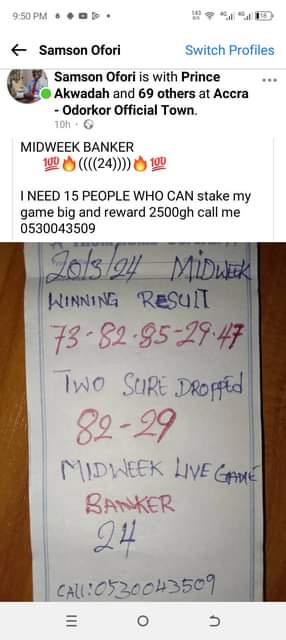 9:50 PM
143 B/S 4G 4G 18
Samson Ofori
Switch Profiles
Samson Ofori is with Prince
Akwadah and 69 others at Accra
- Odorkor Official Town.
10h ·
MIDWEEK BANKER
💯🔥((((24))))🔥💯
I NEED 15 PEOPLE WHO CAN stake my
game big and reward 2500gh call me
0530043509
20/3/24 MIDWEEK
WINNING RESULT
73-82-85-29-47
TWO SURE DROPPED
82-29
MIDWEEK LIVE GAME
BANKER
24
CALL:0530043509